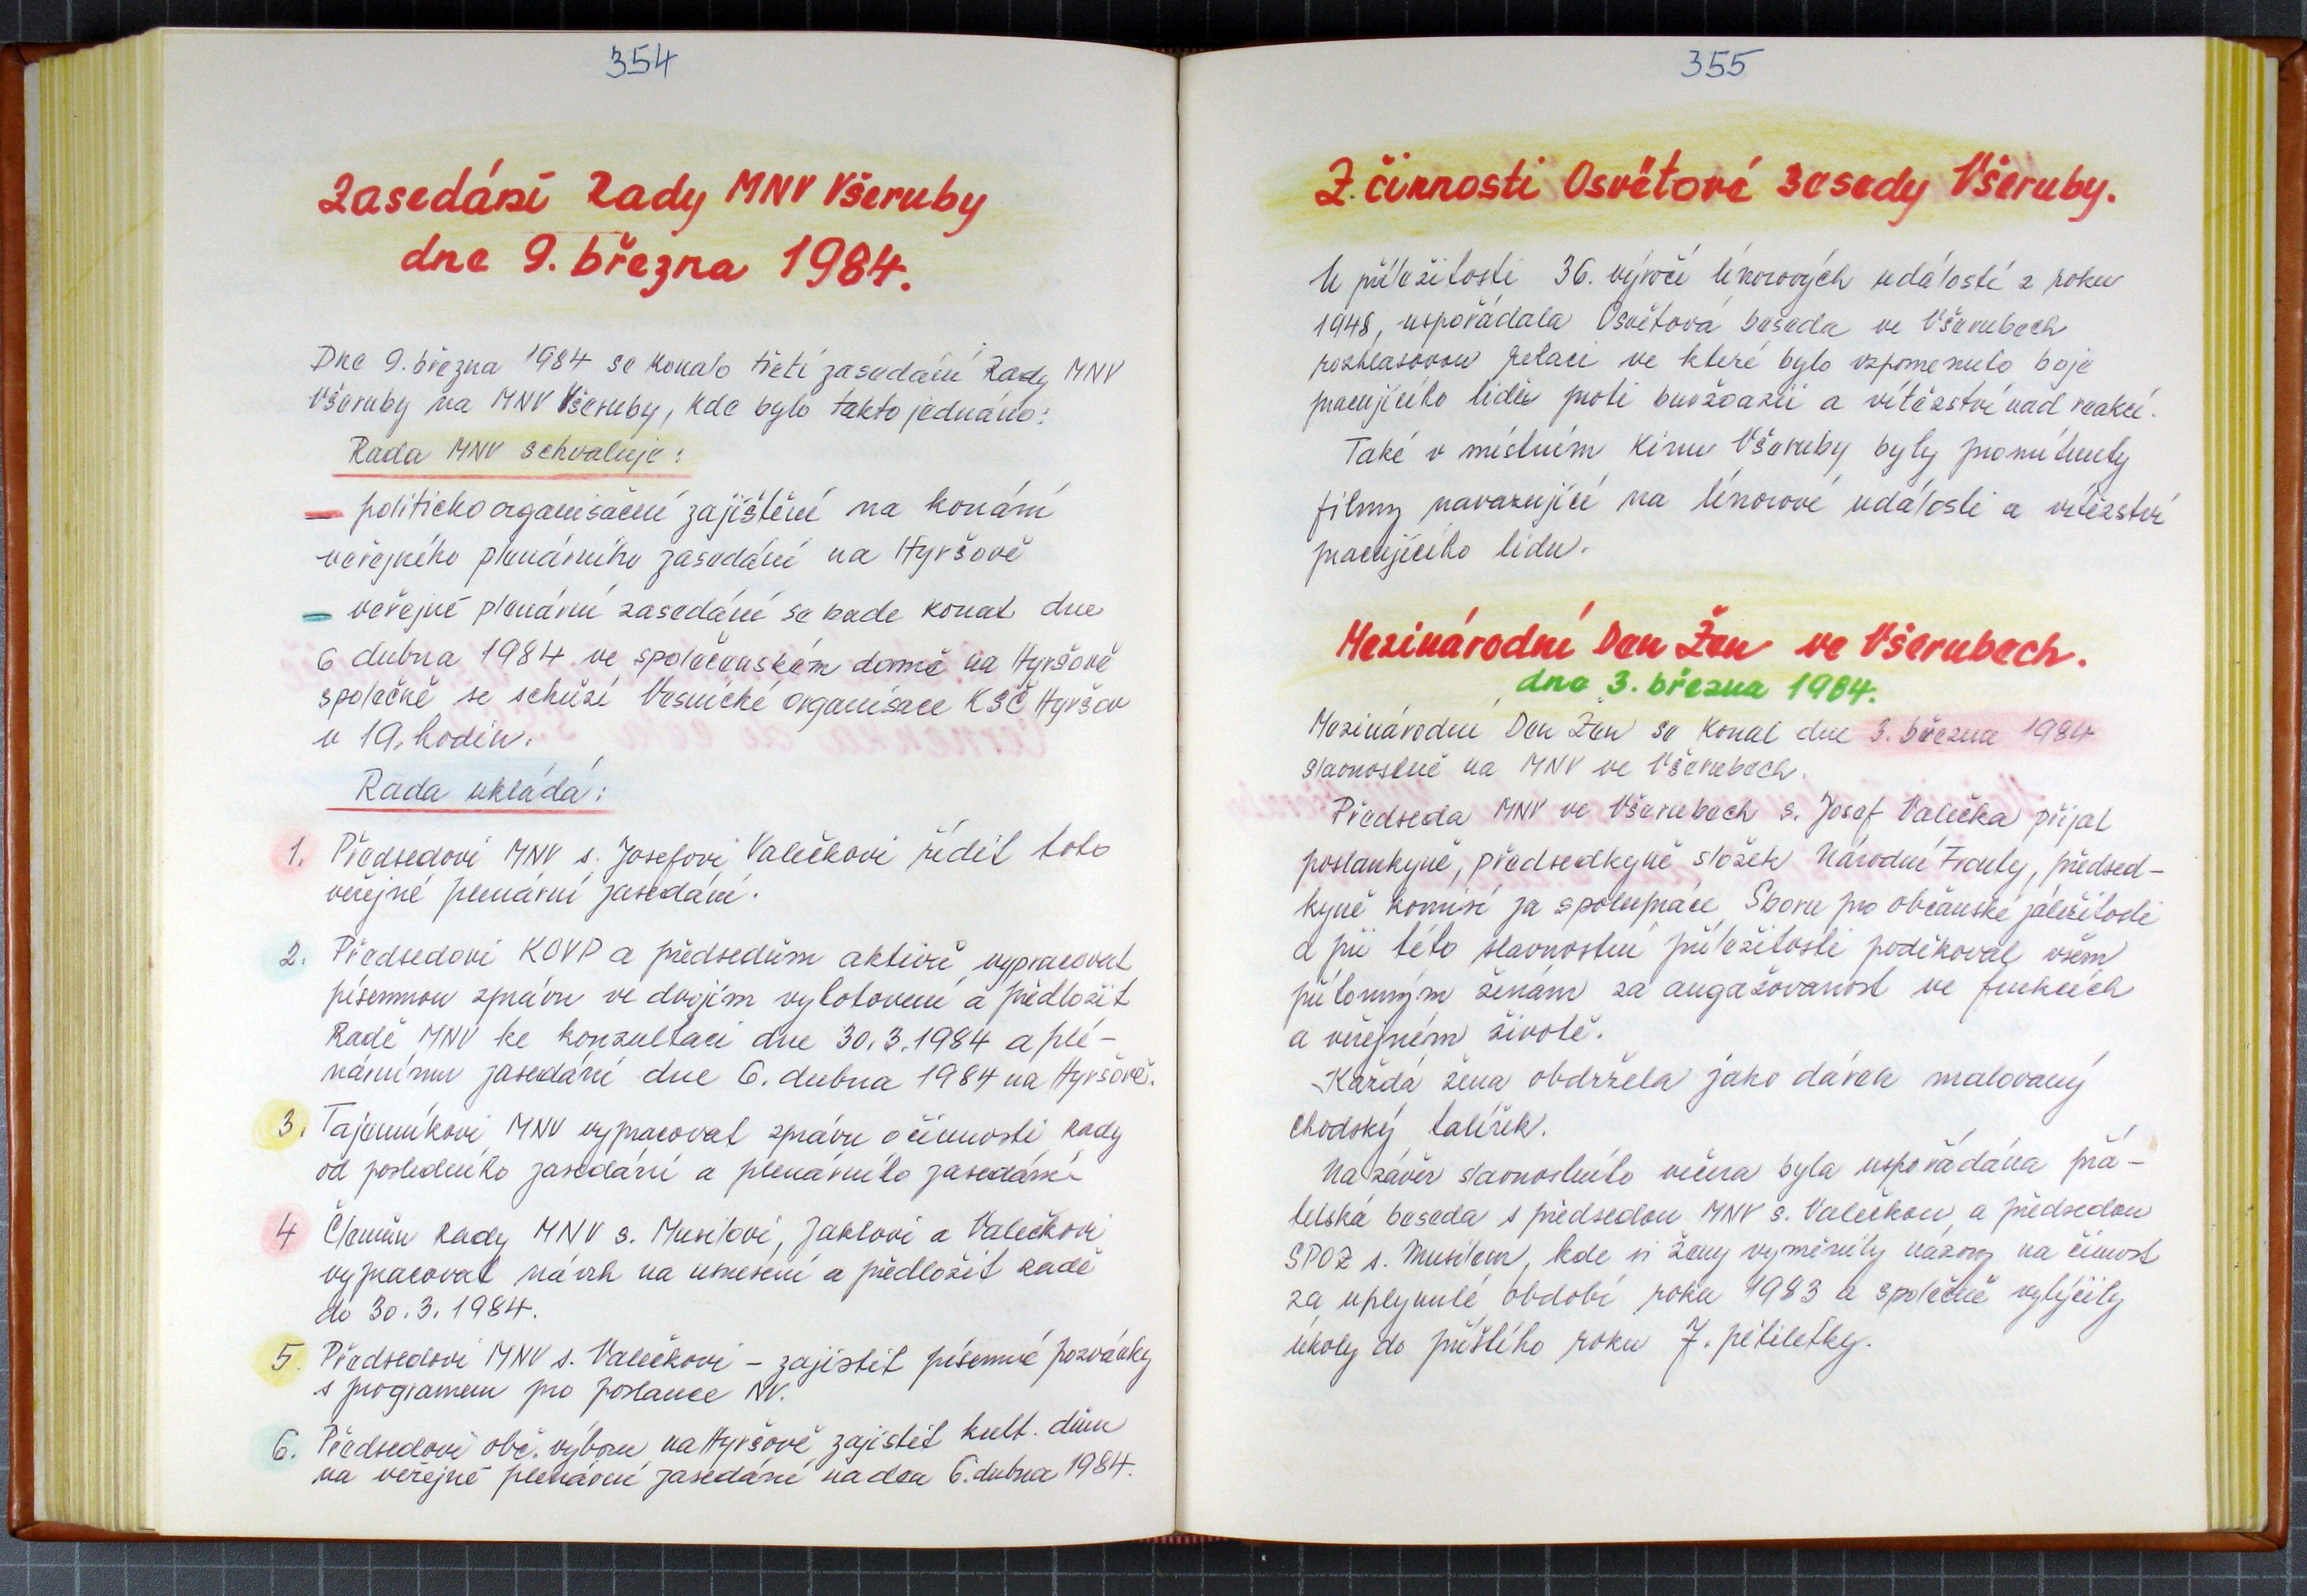 354
Zasedání Rady MNV Všeruby
dne 9. března 1984.
Dne 9. března 1984 se konalo třetí zasedání Rady MNV
Všeruby na MNV Všeruby, kde bylo takto jednáno:
Rada MNV schvaluje:
– politickoorganisační zajištění na konání
veřejného plenárního zasedání na Hyršově
– veřejné plenární zasedání se bude konat dne
6 dubna 1984 ve společenském domě na Hyršově
společně se schůzí Vesnické organisace KSČ Hyršov
v 19. hodin.
Rada ukládá:
1. Předsedovi MNV s. Josefovi Valečkovi řídit toto
veřejné plenární zasedání.
2. Předsedovi KOVP a předsedům aktivů vypracovat
písemnou zprávu ve dvojím vyhotovení a předložit
Radě MNV ke konzultaci dne 30.3.1984 a ple-
nárnímu zasedání dne 6. dubna 1984 na Hyršově.
3. Tajemníkovi MNV vypracovat zprávu o činnosti Rady
od posledního zasedání a plenárního zasedání
4 Členům Rady MNV s. Musilovi, Jaklovi a Valečkovi
vypracovat návrh na usnesení a předložit radě
do 30.3.1984.
5. Předsedovi MNV s. Valečkovi – zajistit písemné pozvánky
s programem pro poslance NV.
6. Předsedovi obč. výboru na Hyršově zajistit kult. dům
na veřejné plenární zasedání na den 6. dubna 1984.
355
Z činnosti Osvětové besedy Všeruby.
U příležitosti 36. výročí únorových událostí z roku
1948, uspořádala Osvětová beseda ve Všerubech
rozhlasovou relaci ve které bylo vzpomenuto boje
pracujícího lidu proti buržoazii a vítězství nad reakcí.
Také v místním kinu Všeruby byly promítnuty
filmy navazující na únorové události a vítězství
pracujícího lidu.
Mezinárodní Den Žen ve Všerubech.
dne 3. března 1984.
Mezinárodní Den Žen se konal dne 3. března 1984
slavnostně na MNV ve Všerubech.
Předseda MNV ve Všerubech s. Josef Valečka přijal
poslankyně, předsedkyně složek Národní Fronty, předsed-
kyně komisí za spolupráce Sboru pro občanské záležitosti
a při této slavnostní příležitosti poděkoval všem
přítomným ženám za angažovanost ve funkcích
a veřejném životě.
Každá žena obdržela jako dárek malovaný
chodský talířek.
Na závěr slavnostního večera byla uspořádána přá-
telská beseda s předsedou MNV s. Valečkou a předsedou
SPOZ s. Musilem, kde si ženy vyměnily názory na činnost
za uplynulé období roku 1983 a společně vytýčily
úkoly do příštího roku 7. pětiletky.